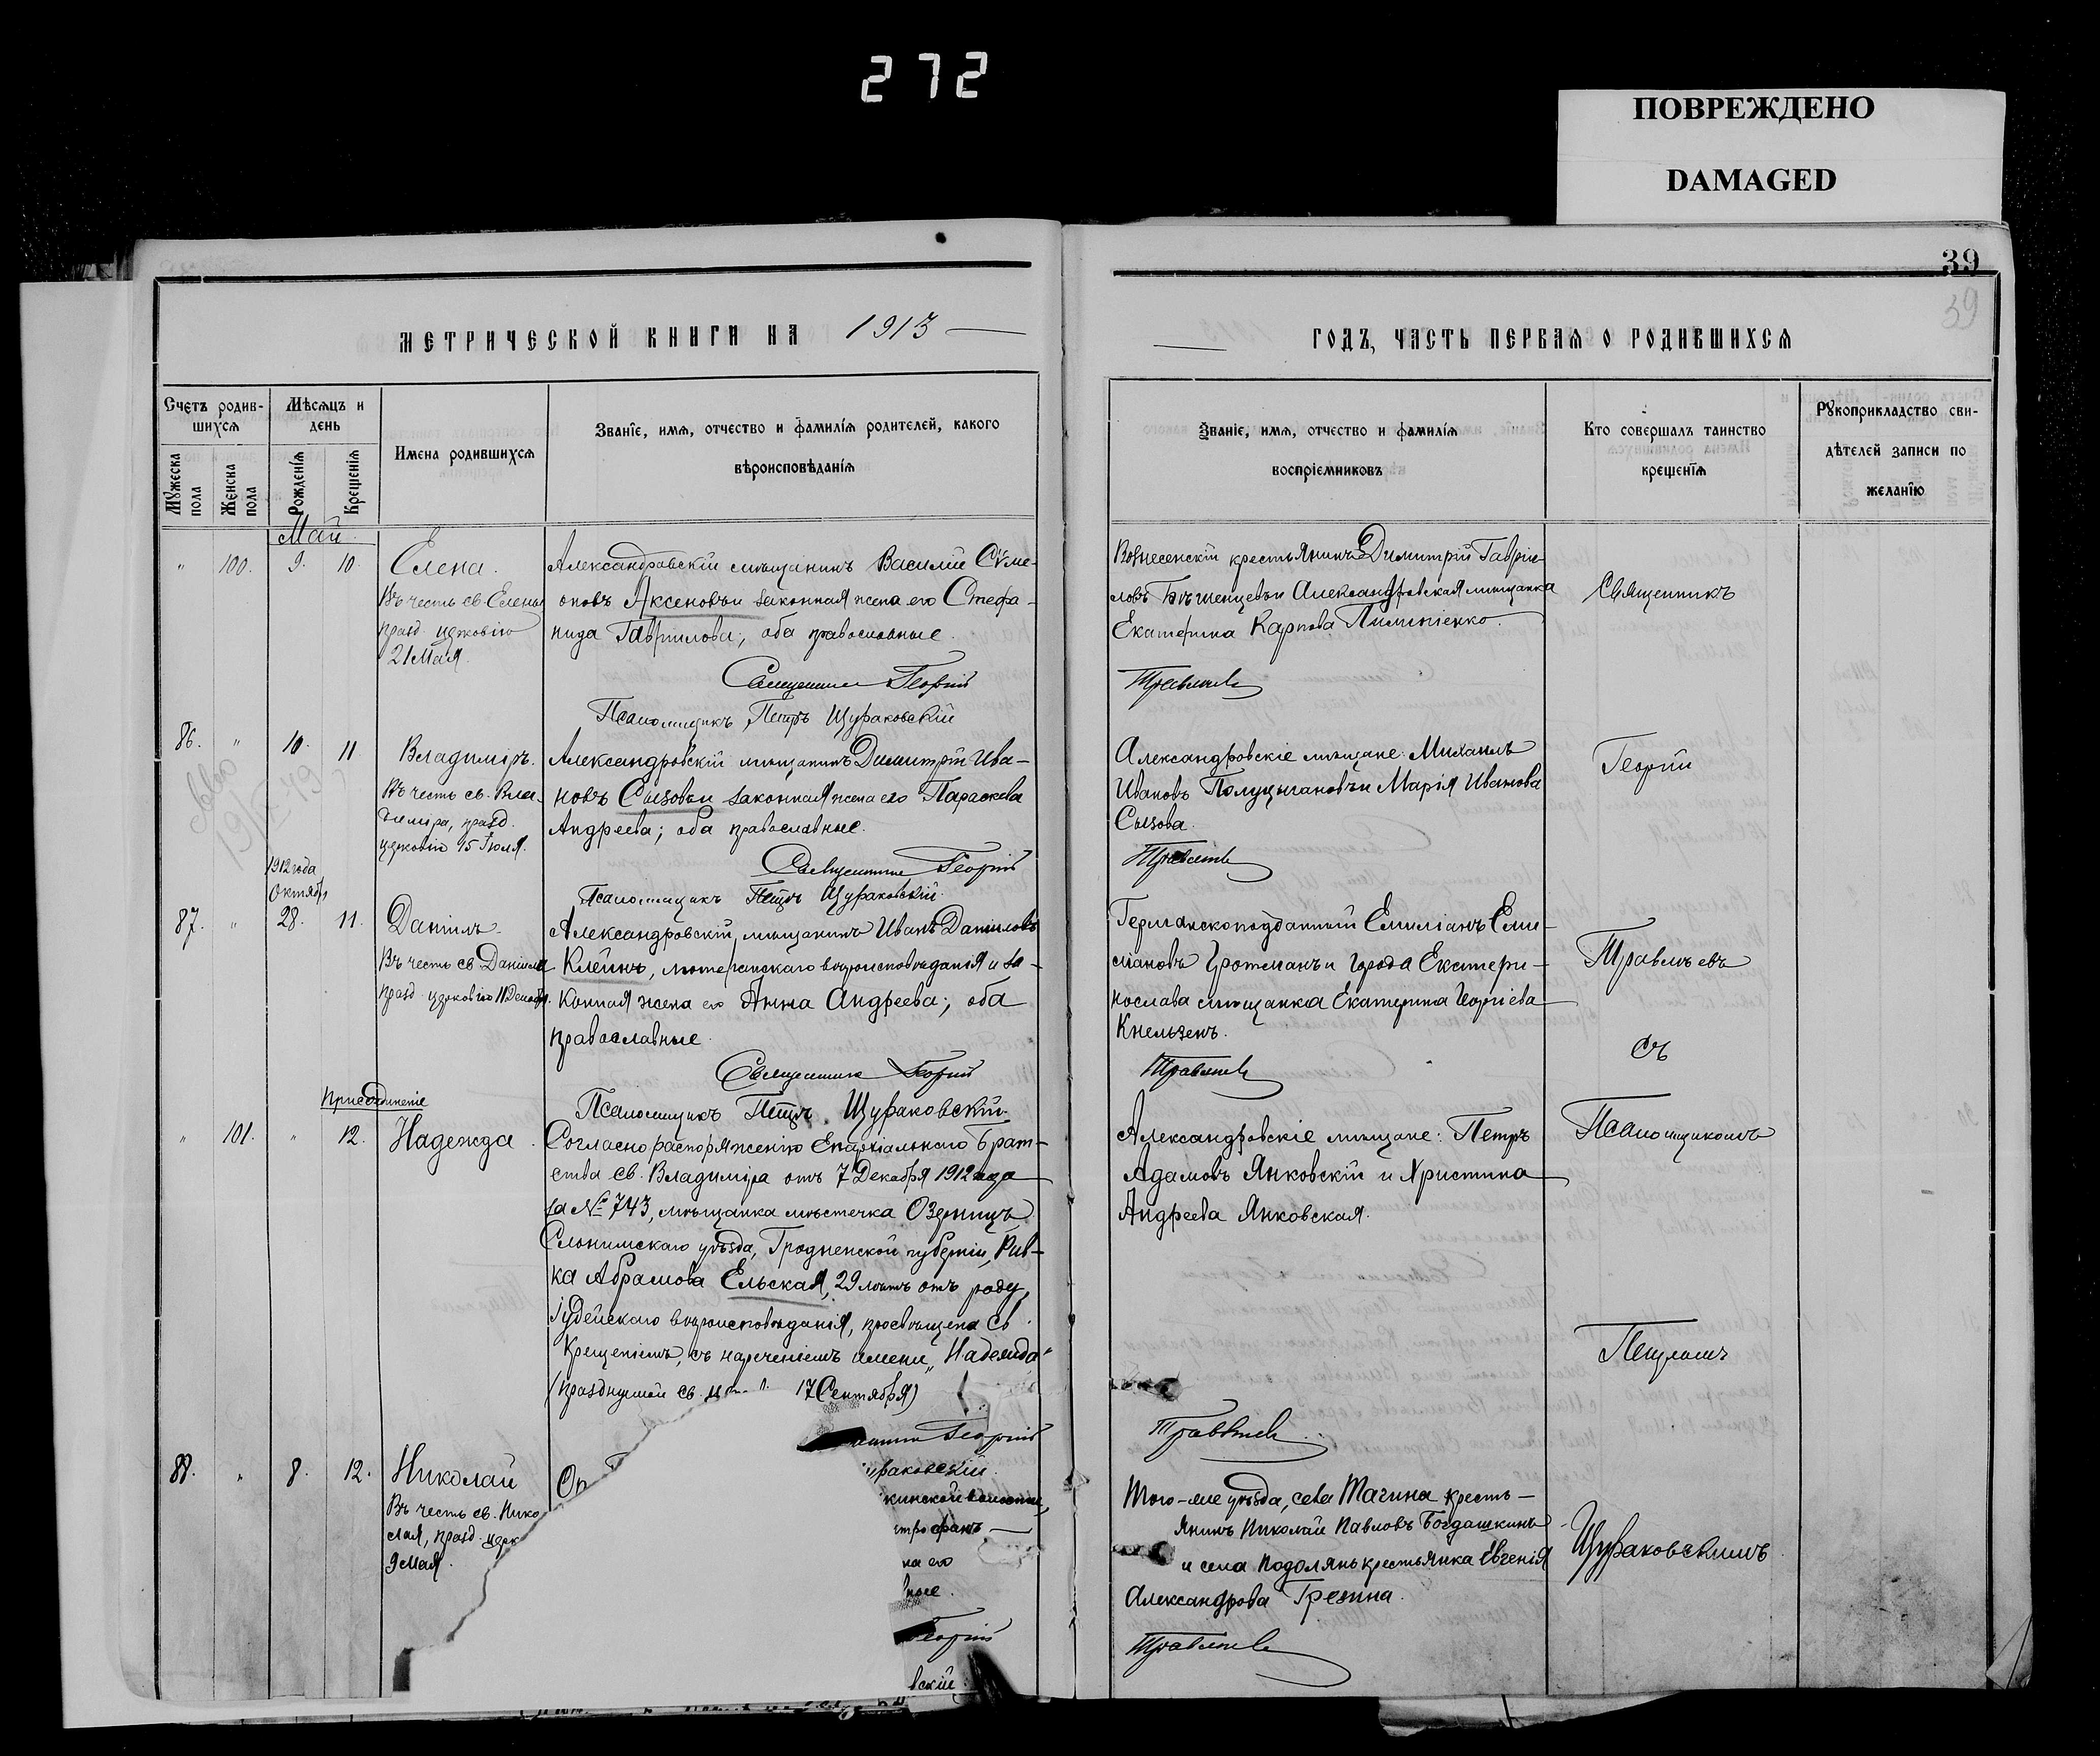 272
ПОВРЕЖДЕНО
DAMAGED
39
39
МЕТРИЧЕСКОЙ КНИГИ НА 1913
Счетъ родив-
шихся
Мѣсяцъ и
день
Мужеска пола
Женска пола
Рожденія
Крещенія
Имена родившихся
Званіе, имя, отчество и фамилія родителей, какого
вѣроисповѣданія
Май
" 100. 9. 10. Елена.
Въ честь св. Елены
празд. церковію
21 Мая.
Александровскій мѣщанинъ Василій Сѵме-
оновъ Аксеновъ и законная жена его Стефа-
нида Гаврилова; оба православные.
Священникъ Георгій
Псаломщикъ Петръ Щураковскій
86. " 10. 11. Владиміръ.
Въ честь св. Вла-
диміра, празд.
церковію 15 Іюля.
Александровскій мѣщанинъ Димитрій Ива-
новъ Сызовъ и законная жена его Параскева
Андреева; оба православные.
Священникъ Георгій
Псаломщикъ Петръ Щураковскій.
1912 года
Октябр
87. " 28. 11. Даніилъ.
Въ честь св. Даніила
празд. церковію 11 Декабря.
Александровскій мѣщанинъ Иванъ Даніиловъ
Клейнъ, лютеранскаго вѣроисповѣданія и за-
конная жена его Анна Андреева; оба
православные.
Священникъ Георгій
Псаломщикъ Петръ Щураковскій.
Присоединеніе
" 101. " 12. Надежда.
Согласно распоряженію Епархіальнаго Брат-
ства св. Владиміра отъ 7 Декабря 1912 года
за № 743, мѣщанка мѣстечка Озерницъ
Слонимскаго уѣзда, Гродненской губерніи, Рив-
ка Абрамова Ельская, 29 лѣтъ отъ роду,
Іудейскаго вѣроисповѣданія, просвѣщена Св.
Крещеніемъ, съ нареченіемъ имени „Надежда"
(празднуемой св. 17 Сентября)
Георгій
ураковскій.
88. " 8. 12. Николай
Въ честь св. Нико
лая, празд. церк
9 Мая.
Ор
кинской волости,
трофанъ
на его
ные.
Георгій
вскій
ГОДЪ, ЧАСТЬ ПЕРВАЯ О РОДИВШИХСЯ
Званіе, имя, отчество и фамилія
воспріемниковъ
Кто совершалъ таинство
крещенія
Рукоприкладство сви-
дѣтелей записи по
желанію
Вознесенскій крестьянинъ Димитрій Гаврі-
ловъ Бѣшенцевъ и Александровская мѣщанка
Екатерина Карпова Пилипенко.
Травлѣевъ
Александровскіе мѣщане: Михаилъ
Ивановъ Полуцыгановъ и Марія Иванова
Сызова.
Травлѣевъ
Германскоподданный Емиліанъ Еми-
ліановъ Гротманъ и города Екатери-
нослава мѣщанка Екатерина Георгіева
Кнельзенъ.
Травлѣевъ
Александровскіе мѣщане: Петръ
Адамовъ Янковскій и Христина
Андреева Янковская.
Травлѣевъ
Того-же уѣзда, села Тагина кресть-
янинъ Николай Павловъ Богдашкинъ
и села Подолянь крестьянка Евгенія
Александрова Грезина.
Травлѣевъ
Священникъ
Георгій
Травлѣевъ
съ
Псаломщикомъ
Петромъ
Щураковскимъ